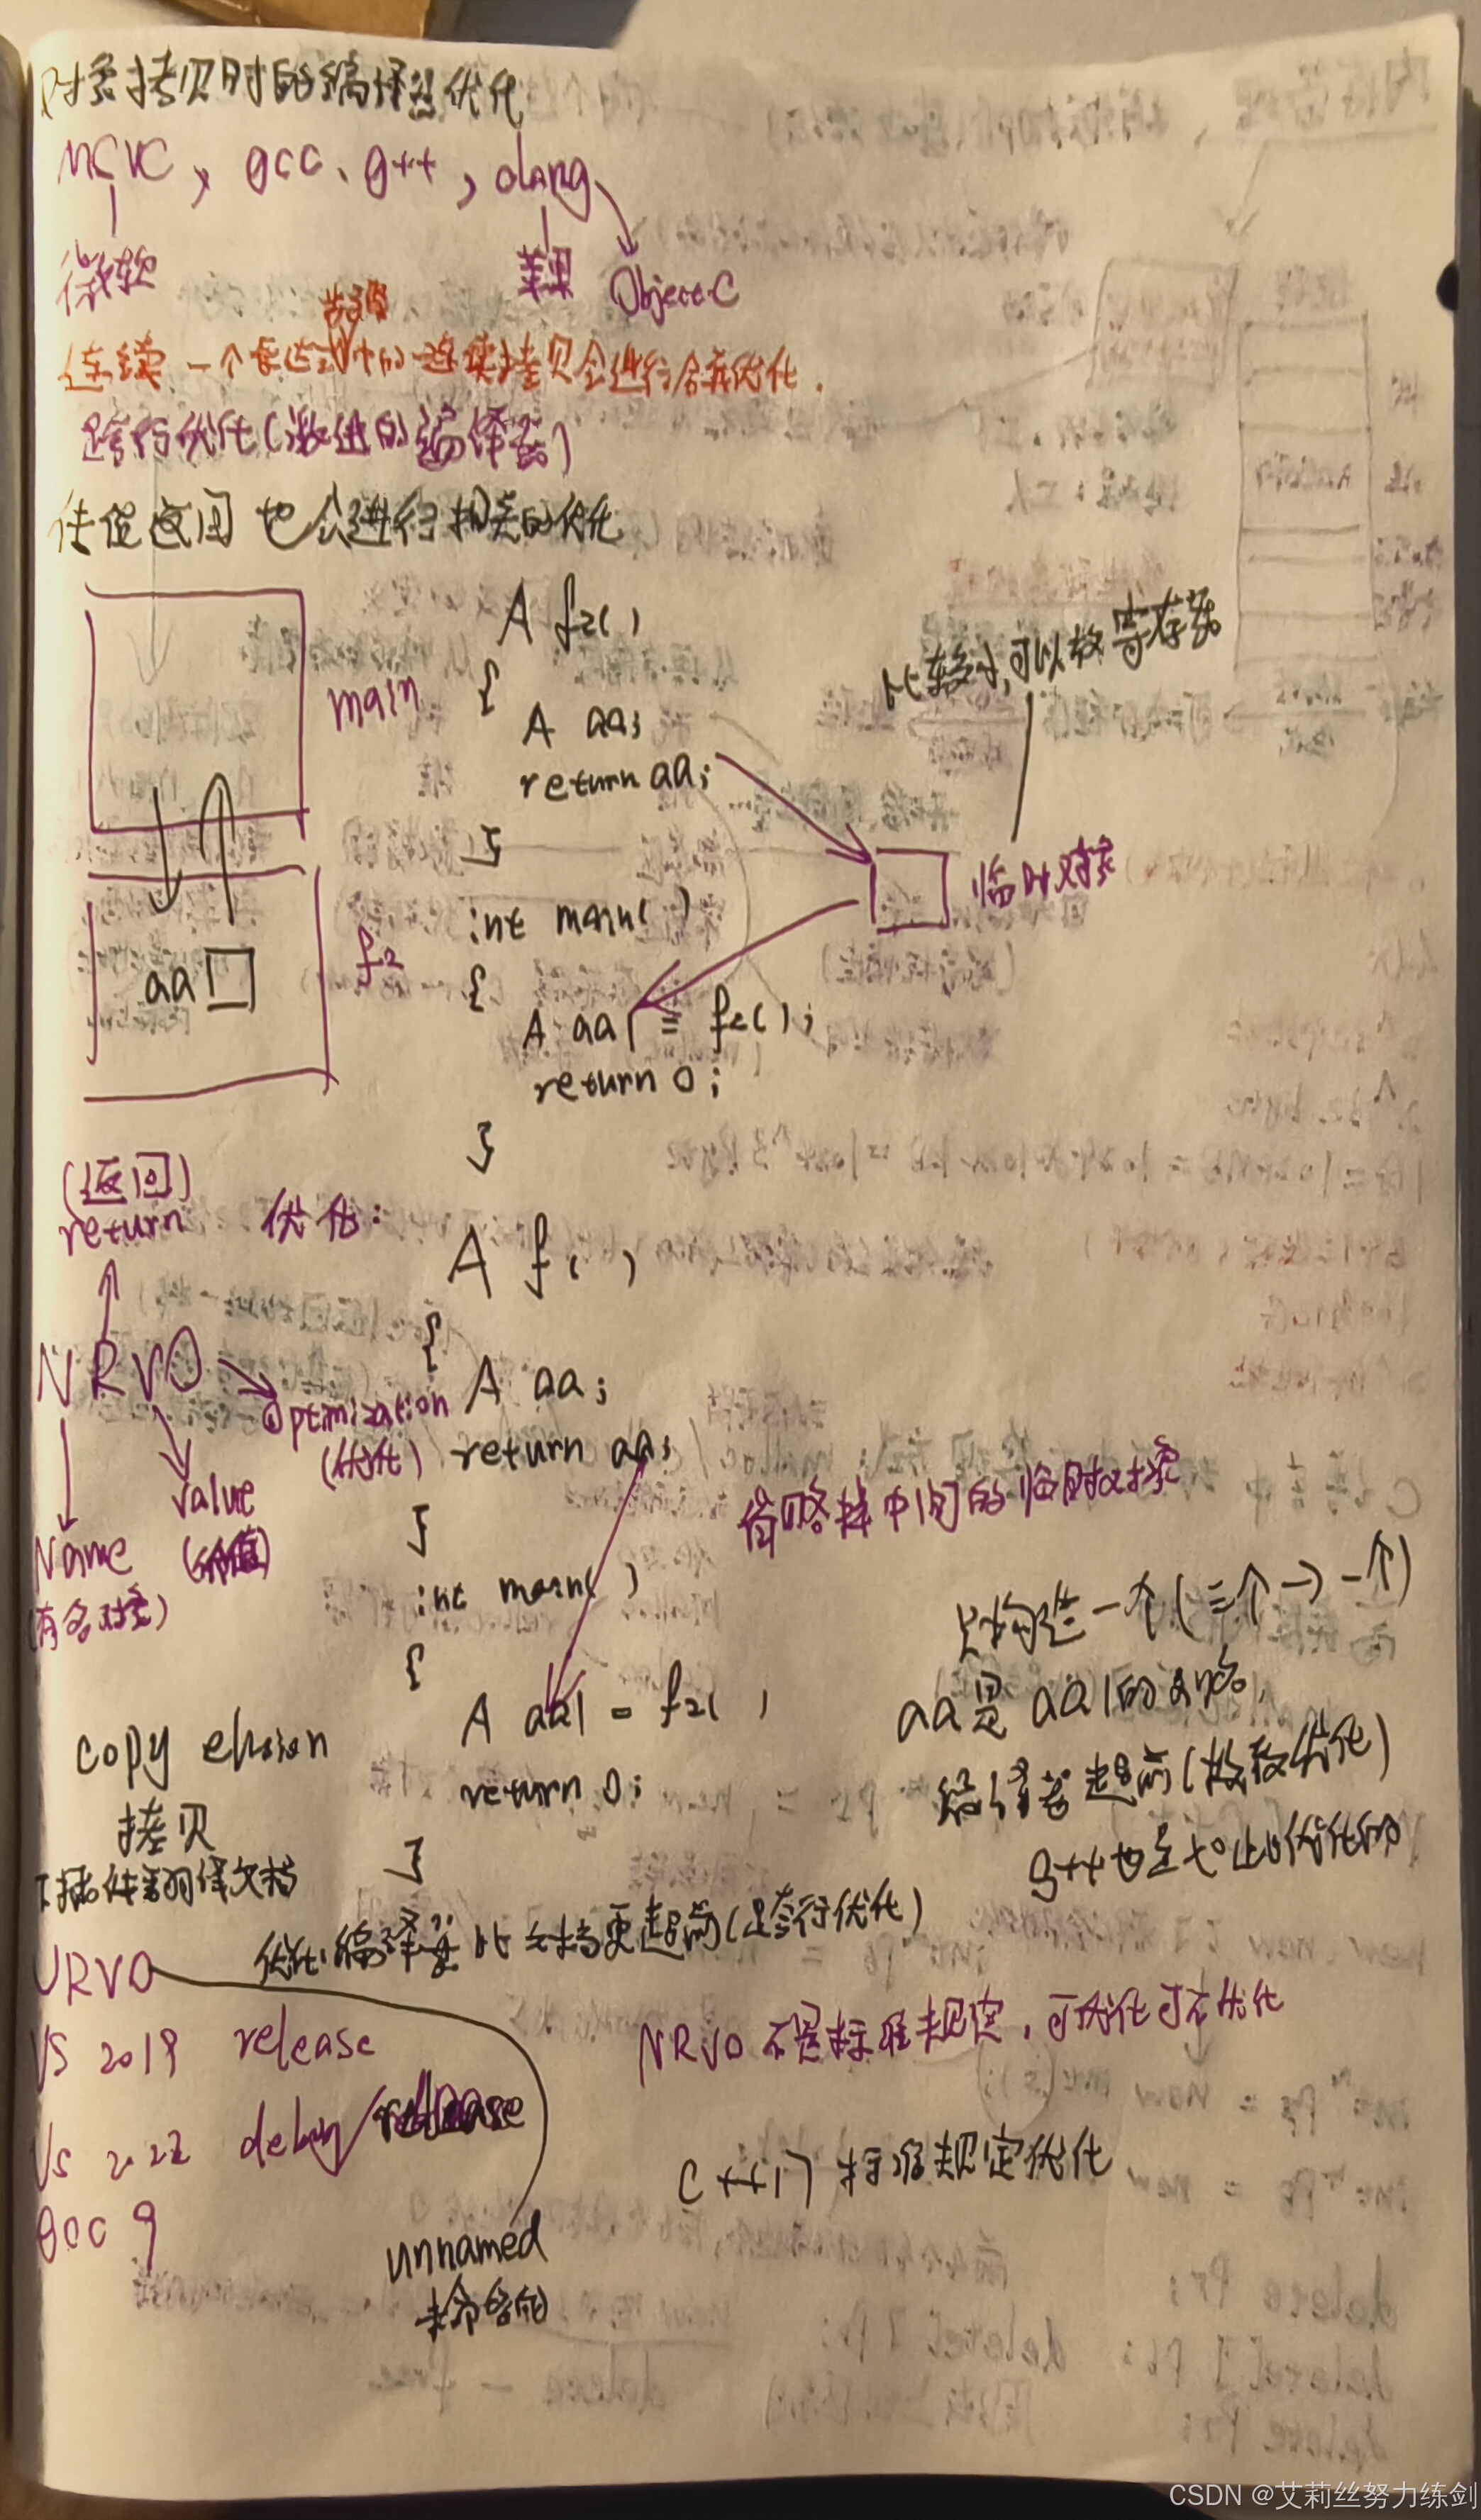 对象拷贝时的编译器优化
MSVC, gcc、g++, clang
微软 苹果 Object-C
连续 一个表达式中的连续拷贝会进行合并优化.
步骤
跨行优化(激进的编译器)
传值返回 也会进行相关的优化
A f2()
{
A aa;
return aa;
}
比较小,可以放寄存器
main
临时对象
int main()
{
f2
aa
A aa1 = f2();
return 0;
}
(返回)
return 优化:
A f()
{
NRVO
A aa;
Optimization
(优化)
return aa;
}
value
(价值)
Name
(有名对象)
省略掉中间的临时对象
int main()
{
只构造一个(三个→一个)
A aa1 = f2(
aa是aa1的
return 0;
}
编译器超前(极致优化)
g++也是
copy elision
拷贝
插件翻译文档
优化:编译器比 更超前(跨行优化)
URVO
VS 2019 release
NRVO 不是标准规定,可优化可不优化
VS 2022 debug/release
C++17 标准规定优化
gcc 9
unnamed
未命名的
CSDN @艾莉丝努力练剑